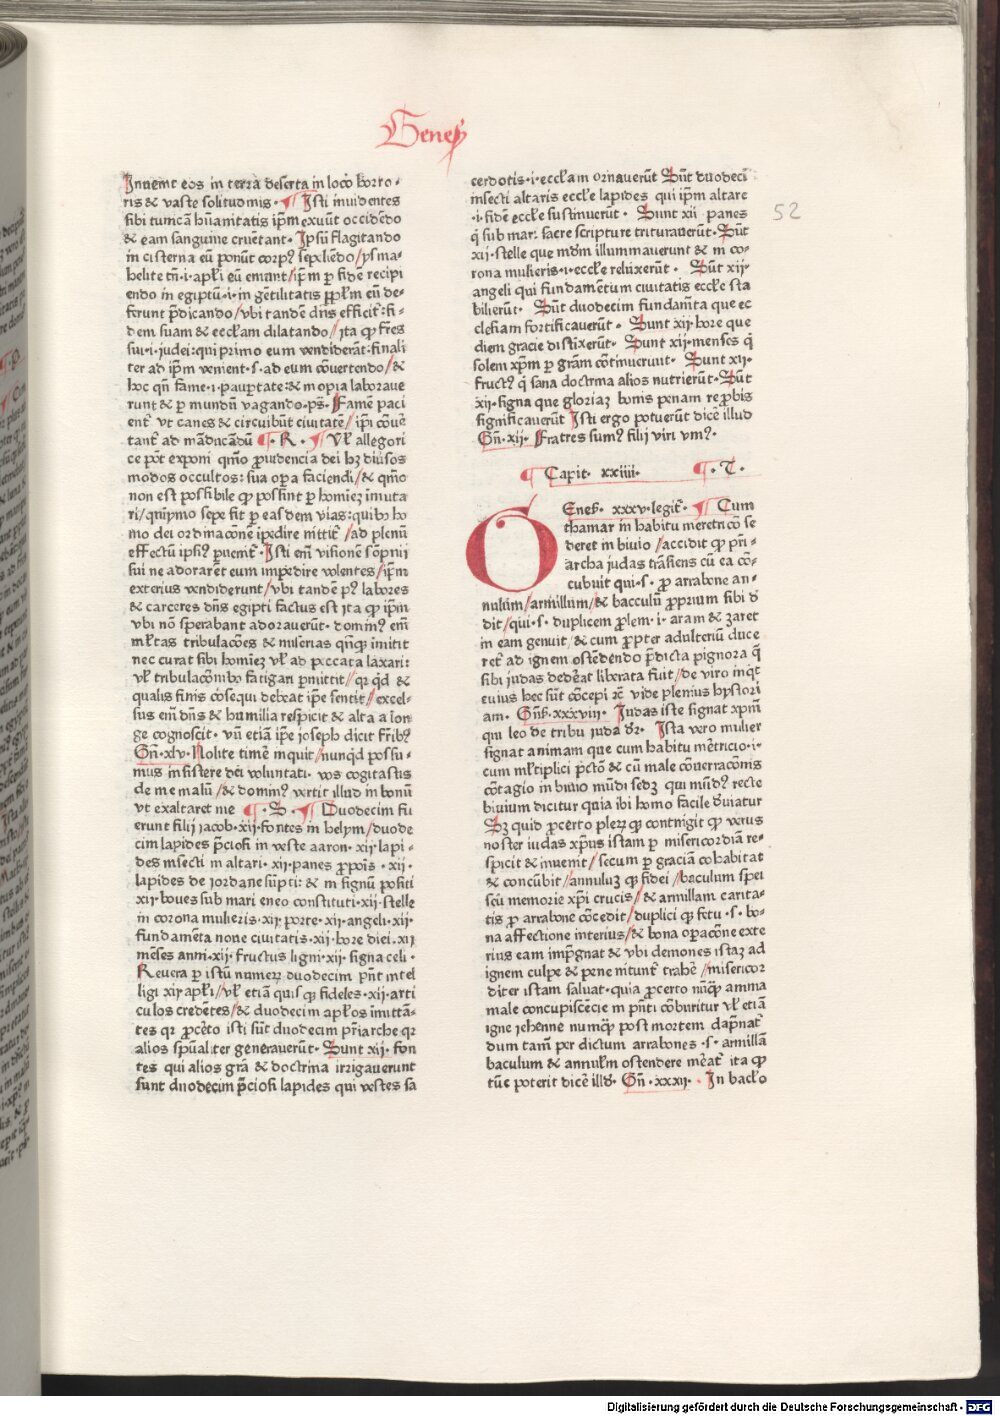 Genes̄
Inuenit eos in terra deserta in loco horro·
ris & vaste solitudinis · ¶ Isti inuidentes
sibi tunicā hūanitatis ip̄m exuūt occidēdo
& eam sanguine cruētant· Ipsū flagitando
in cisterna eū ponūt corpꝰ sepeliēdo / ysma·
helite tn̄·i·apl̄i eū emunt / ip̄m p fidē recipi
endo in egiptū·i·in gētilitatis ppl̄m eū de·
ferunt p̄dicando / vbi tandē dn̄s efficit̄ fi·
dem suam & eccl̄am dilatando // ita ꝙ fr̄es
sui·i·iudei: qui primo eum vendiderāt: finali
ter ad ip̄m venient·s·ad eum cōuertendo /&
hoc qn̄ fame·i·paupertate & inopia laboraue
runt & p mundū vagando·ps̄· Famē paci
ent̄ vt canes & circuibūt ciuitatē / ip̄i cōue
tant̄ ad māducādū ¶· R · ¶ Vl̄ allegori
ce pōt exponi qm̄o p̄uidencia dei hꝫ diūsos
modos occultos: sua opa faciendi /& qm̄o
non est possibile ꝙ possint p homiēꝫ īmuta
ri / qnīymo sepe fit p eas dem vias: quibꝰ ho
mo dei ordinacōnē īpedire nittit̄ / ad plenū
effectū ipsiꝰ puenit̄· Isti em̄ visionē sōpnij
sui ne adorarēt eum impedire volentes / ip̄m
exterius vendiderunt / vbi tandē pꝰ labores
& carceres dn̄s egipti factus est ita ꝙ ip̄m
vbi nō sperabant adorauerūt· dominꝰ em̄
ml̄tas tribulacōes & miserias qn̄qꝫ īmittit
nec curat sibi homiēꝫ vl̄ ad peccata laxari:
vl̄ tribulacōnibꝰ fatigari pmittit // qr qd̄ &
qualis finis cōsequi debeat ip̄e sentit // excel·
sus em̄ dn̄s & humilia respicit & alta a lon
ge cognoscit· vn̄ etiā ip̄e ioseph dicit fr̄ibꝰ
Gn̄·xlv· Nolite timē inquit / nunqd̄ possu·
mus in sistere dei voluntati· vos cogitastis
de me malū /& dominꝰ vertit illud in bonū
vt exaltaret me ¶ · S · ¶ Duodecim fu
erunt filij iacob·xij·fontes in helym / duode
cim lapides p̄ciosi in veste aaron·xij lapi·
des insecti in altari·xij·panes ꝓpoīs ·xij·
lapides de iordane sūpti: & in signū positi
xij·boues sub mari eneo constituti·xij·stelle
in corona mulieris·xij·porte·xij·angeli·xij·
fundamēta noue ciuitatis·xij·hore diei·xij
mēses anni·xij·fructus ligni·xij·signa celi·
Reuera p istū numerꝫ duodecim pn̄t intel
ligi xij apl̄i / vl̄ etiā quis qꝫ fideles·xij·arti
culos credētes /& duodecim apl̄os īmittā·
tes qr ꝓcēto isti sūt duodecim pr̄iarche qr
alios spūaliter generauerūt· Sunt xij· fon
tes qui alios grā & doctrina irrigauerunt
sunt duodecim p̄ciosi lapides qui vestes sa
cerdotis·i·eccl̄am ornauerūt Sūt duodeci
insecti altaris eccl̄e lapides qui ip̄m altare
·i·fidē eccl̄e sustinuerūt · Sunt xij·panes
q̄ sub mar: sacre scripture triturauerūt·Sūt
xij·stelle que mūdm̄ illuminauerunt & in co·
rona mulieris·i·eccl̄e reluxerūt · Sūt xij·
angeli qui fundamentum ciuitatis eccl̄e sta
bilierūt· Sūt duodecim fundam̄ta que ec
clesiam fortificauerūt · Sunt xij·hore que
diem gracie distixerūt· Sunt xij·menses q̄
solem xp̄m p grām cōtinuerunt· Sunt xij·
fructꝰ q̄ sana doctrina alios nutrierūt·Sūt
xij·signa que gloriaꝫ bonis penam reprobis
significauerūt Isti ergo potuerūt dicē illud
Gn̄·xij· Fratres sumꝰ filij viri vniꝰ·
52
¶ Capit· xxiiii· ¶ · T ·
Genes̄· xxxv·legit̄· ¶ Cum
thamar in habitu meretricō se
deret in biuio / accidit ꝙ pr̄i·
archa iudas trāsiens cū ea cō·
cubuit qui·s· ꝓ arrabone an·
nulum / armillum /& bacculū ꝓprium sibi d
dit / qui·s·duplicem ꝓlem·i· aram & zaret
in eam genuit / & cum ꝓpter adulteriū duce
ret̄ ad ignem ostēdendo p̄dicta pignora q̄
sibi iudas dederat liberata fuit / de viro inq̄t
cuius hec sūt cōcepi ꝛc̄ vide plenius hystori
am· Gn̄s̄·xxxviii· Iudas iste signat xp̄m
qui leo de tribu iuda dr̄· Ista vero mulier
signat animam que cum habitu mētricio·i·
cum ml̄tiplici pctō & cū male conuersacōnis
cōtagio in biuio mūdi sedꝫ qui mūdꝰ recte
biuium dicitur quia ibi homo facile d̄uiatur
Sꝫ quid ꝓcerto plerꝫ qꝫ contingit ꝙ verus
noster iudas xp̄us istam p misericordiam re·
spicit & inuenit / secum p graciā cohabitat
& concūbit / annuluꝫ qꝫ fidei // baculum spei
seū memorie xp̄i crucis /& armillam carita·
tis ꝓ arrabone cōcedit / duplici qꝫ fetu·s·bo·
na affectione interius /& bona opacōne exte
rius eam imp̄gnat & vbi demones istaꝫ ad
ignem culpe & pene nitunt̄ trahē / misericor
diter istam saluat·quia ꝓcerto nūqꝫ anima
male concupiscēcie in p̄nti cōburitur vl̄ etiā
igne iehenne numqꝫ post mortem dapnat̄
dum tam̄ per dictum arrabones ·s·armillā
baculum & annulꝫm ostendere m̄eat̄ ita ꝙ
tūc poterit dicē illd̄· Gn̄·xxxij· · In bacl̄o
Digitalisierung gefördert durch die Deutsche Forschungsgemeinschaft - DFG